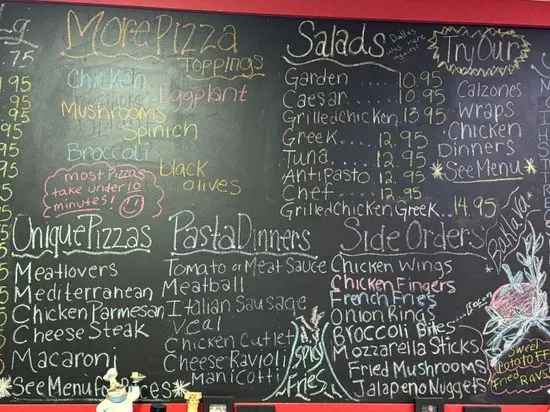 More Pizza
Toppings
Chicken
Eggplant
Mushrooms
Spinich
Broccoli
black
olives
most Pizzas
take under 10
minutes!
Salads
Dallas
was here
again!
Garden .... 10.95
Caesar .... 10.95
Grilled Chicken 13.95
Greek ... 12.95
Tuna .... 12.95
Antipasto 12.95
Chef .... 12.95
Grilled Chicken Greek .. 14.95
Try Our
Calzones
Wraps
Chicken
Dinners
See Menu
.75
.95
.95
.95
.95
.95
Unique Pizzas
Meatlovers
Mediterranean
Chicken Parmesan
Cheese Steak
Macaroni
See Menu for Prices
Pasta Dinners
Tomato or Meat Sauce
Meatball
Italian Sausage
Veal
Chicken Cutlet
Cheese Ravioli
Manicotti
Spicy
Fries
Side Orders
Chicken Wings
Chicken Fingers
French Fries
Onion Rings
Broccoli Bites
Mozzarella Sticks
Fried Mushrooms
Jalapeno Nuggets
Baklava
Sweet
Potato FF
Fried Ravs